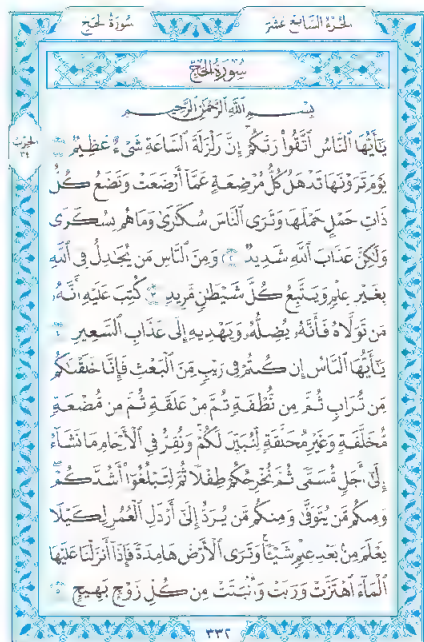 الجزء السابع عشر
سورة الحج
سُورَةُ الحَجِّ
بِسْمِ ٱللَّهِ ٱلرَّحْمَٰنِ ٱلرَّحِيمِ
الحزب
٣٤
يَٰٓأَيُّهَا ٱلنَّاسُ ٱتَّقُوا۟ رَبَّكُمْ إِنَّ زَلْزَلَةَ ٱلسَّاعَةِ شَىْءٌ عَظِيمٌ ١
يَوْمَ تَرَوْنَهَا تَذْهَلُ كُلُّ مُرْضِعَةٍ عَمَّآ أَرْضَعَتْ وَتَضَعُ كُلُّ
ذَاتِ حَمْلٍ حَمْلَهَا وَتَرَى ٱلنَّاسَ سُكَٰرَىٰ وَمَا هُم بِسُكَٰرَىٰ
وَلَٰكِنَّ عَذَابَ ٱللَّهِ شَدِيدٌ ٢ وَمِنَ ٱلنَّاسِ مَن يُجَٰدِلُ فِى ٱللَّهِ
بِغَيْرِ عِلْمٍ وَيَتَّبِعُ كُلَّ شَيْطَٰنٍ مَّرِيدٍ ٣ كُتِبَ عَلَيْهِ أَنَّهُۥ
مَن تَوَلَّاهُ فَأَنَّهُۥ يُضِلُّهُۥ وَيَهْدِيهِ إِلَىٰ عَذَابِ ٱلسَّعِيرِ ٤
يَٰٓأَيُّهَا ٱلنَّاسُ إِن كُنتُمْ فِى رَيْبٍ مِّنَ ٱلْبَعْثِ فَإِنَّا خَلَقْنَٰكُم
مِّن تُرَابٍ ثُمَّ مِن نُّطْفَةٍ ثُمَّ مِنْ عَلَقَةٍ ثُمَّ مِن مُّضْغَةٍ
مُّخَلَّقَةٍ وَغَيْرِ مُخَلَّقَةٍ لِّنُبَيِّنَ لَكُمْ وَنُقِرُّ فِى ٱلْأَرْحَامِ مَا نَشَآءُ
إِلَىٰٓ أَجَلٍ مُّسَمًّى ثُمَّ نُخْرِجُكُمْ طِفْلًا ثُمَّ لِتَبْلُغُوٓا۟ أَشُدَّكُمْ
وَمِنكُم مَّن يُتَوَفَّىٰ وَمِنكُم مَّن يُرَدُّ إِلَىٰٓ أَرْذَلِ ٱلْعُمُرِ لِكَيْلَا
يَعْلَمَ مِنۢ بَعْدِ عِلْمٍ شَيْـًٔا وَتَرَى ٱلْأَرْضَ هَامِدَةً فَإِذَآ أَنزَلْنَا عَلَيْهَا
ٱلْمَآءَ ٱهْتَزَّتْ وَرَبَتْ وَأَنۢبَتَتْ مِن كُلِّ زَوْجٍۭ بَهِيجٍ ٥
٣٣٢